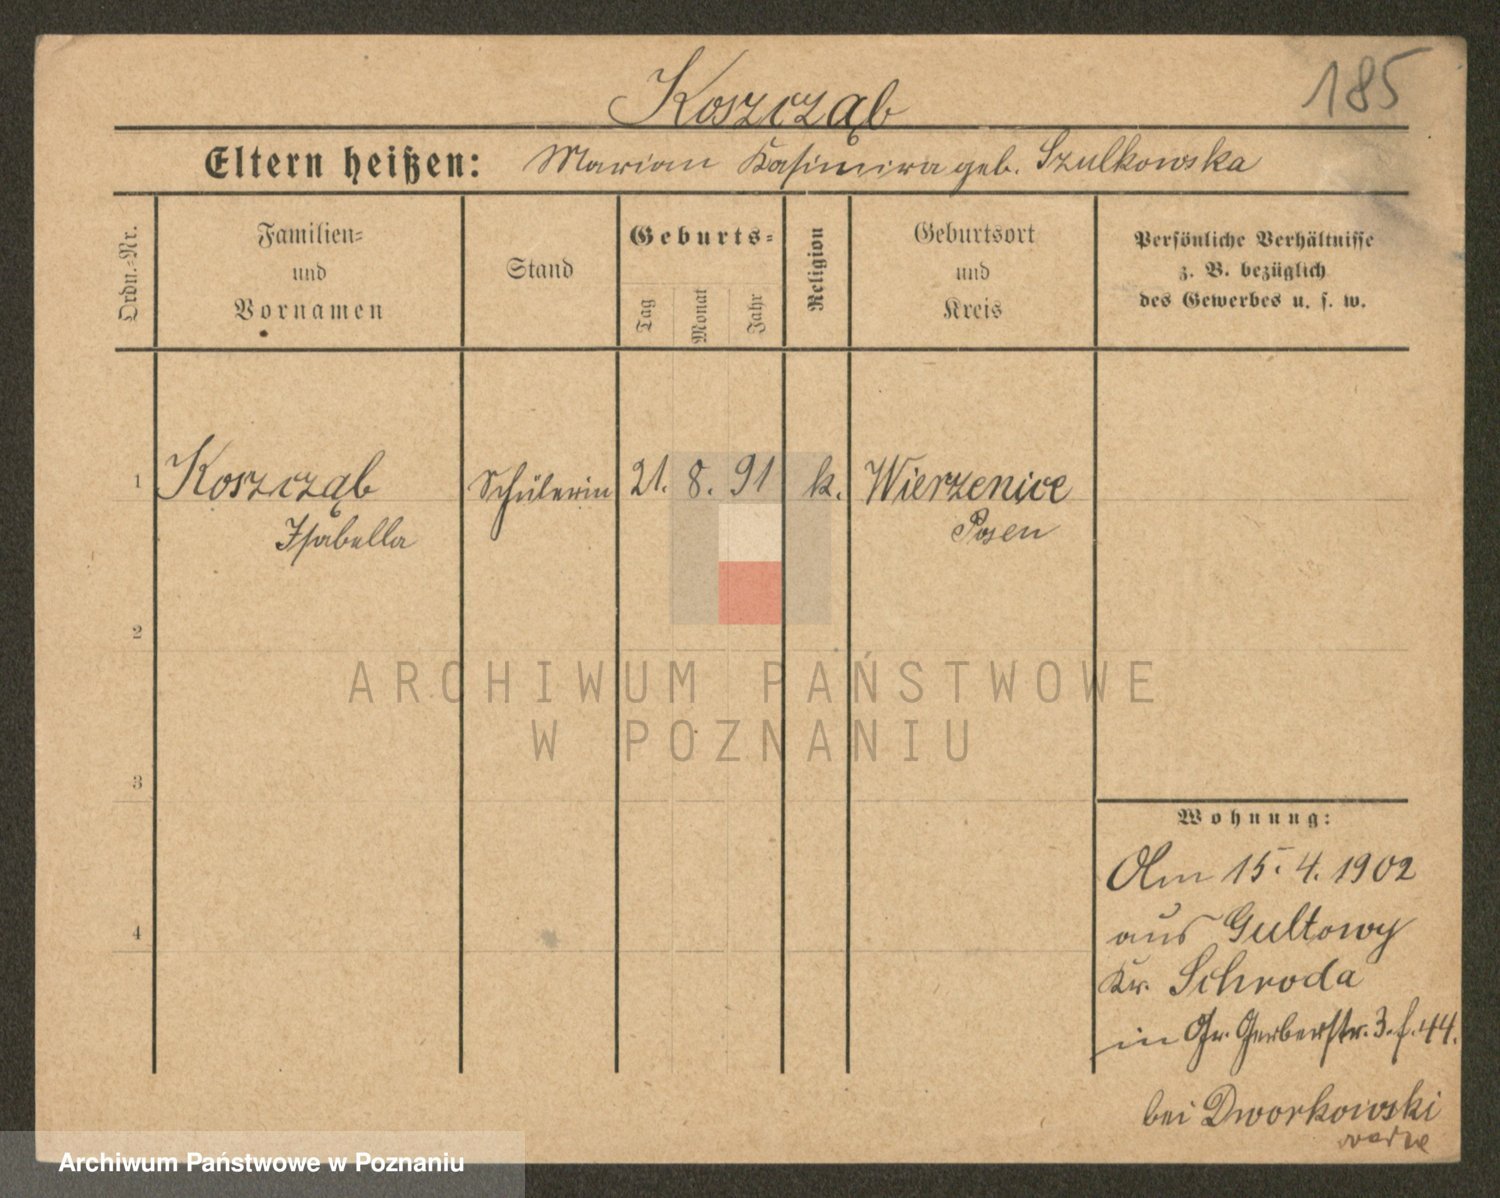 185
Koszcząb
Eltern heißen: Marian Kasimira geb. Szulkowska
Ordn.=Nr.
Familien=
und
Vornamen
Stand
Geburts=
Tag
Monat
Jahr
Religion
Geburtsort
und
Kreis
Persönliche Verhältnisse
z. B. bezüglich
des Gewerbes u. s. w.
1 Koszcząb Schülerin 21. 8. 91 k. Wierzenice
Isabella Posen
2
ARCHIWUM PAŃSTWOWE
W POZNANIU
3
Wohnung:
Am 15. 4. 1902
4
aus Gultowy
Kr. Schroda
in Gr. Gerberstr. 3. f. 44.
bei Dworkowski
Archiwum Państwowe w Poznaniu